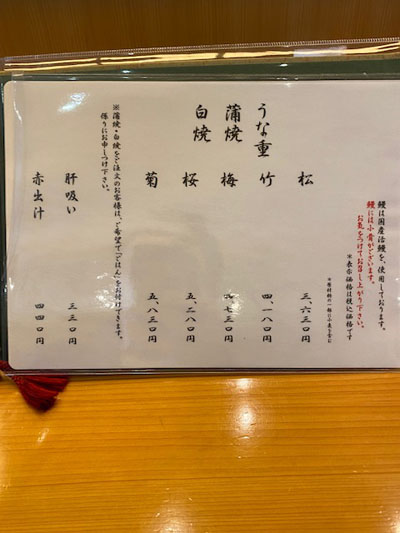 鰻は国産活鰻を、使用しております。
鰻には小骨がございます。
お気をつけてお召し上がり下さい。
※表示価格は税込価格です
松 三、六三〇円
うな重 竹 四、一八〇円
蒲焼 梅 四、七三〇円
白焼 桜 五、二八〇円
菊 五、八三〇円
※蒲焼・白焼をご注文のお客様は、ご希望で「ごはん」をお付けできます。
係りにお申しつけ下さい。
肝吸い 三三〇円
赤出汁 四四〇円